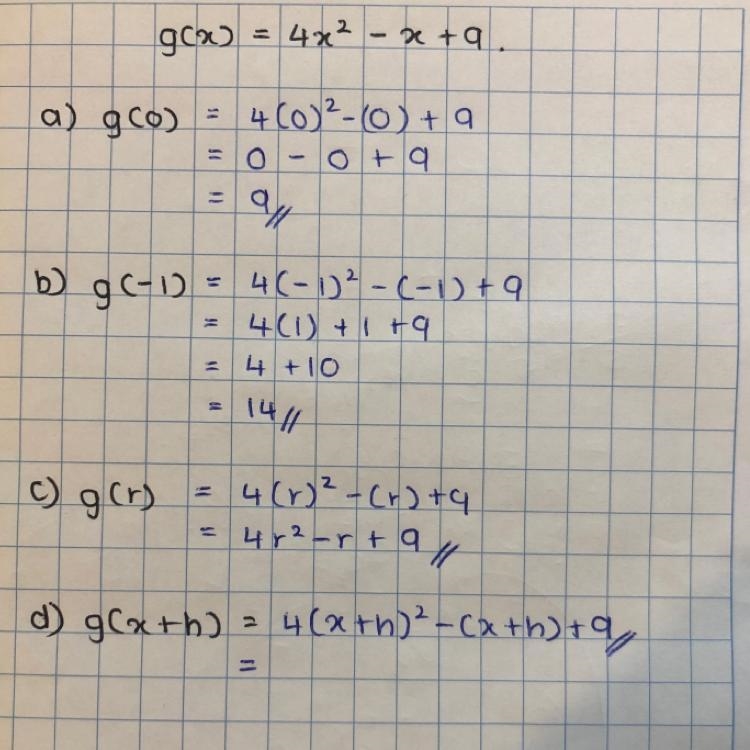 g(x) = 4x² - x + 9.
a) g(0) = 4(0)² - (0) + 9
= 0 - 0 + 9
= 9//
b) g(-1) = 4(-1)² - (-1) + 9
= 4(1) + 1 + 9
= 4 + 10
= 14//
c) g(r) = 4(r)² - (r) + 9
= 4r² - r + 9//
d) g(x+h) = 4(x+h)² - (x+h) + 9//
=